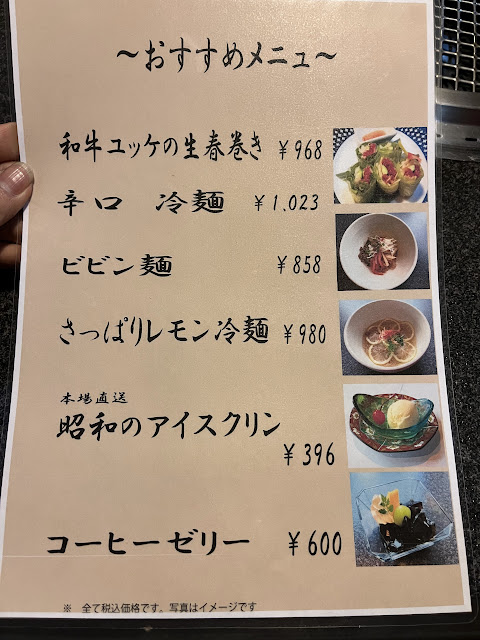 ～おすすめメニュー～
和牛ユッケの生春巻き ￥968
辛口 冷麺 ￥1.023
ビビン麺 ￥858
さっぱりレモン冷麺 ￥980
本場直送
昭和のアイスクリン
￥396
コーヒーゼリー ￥600
※ 全て税込価格です。写真はイメージです